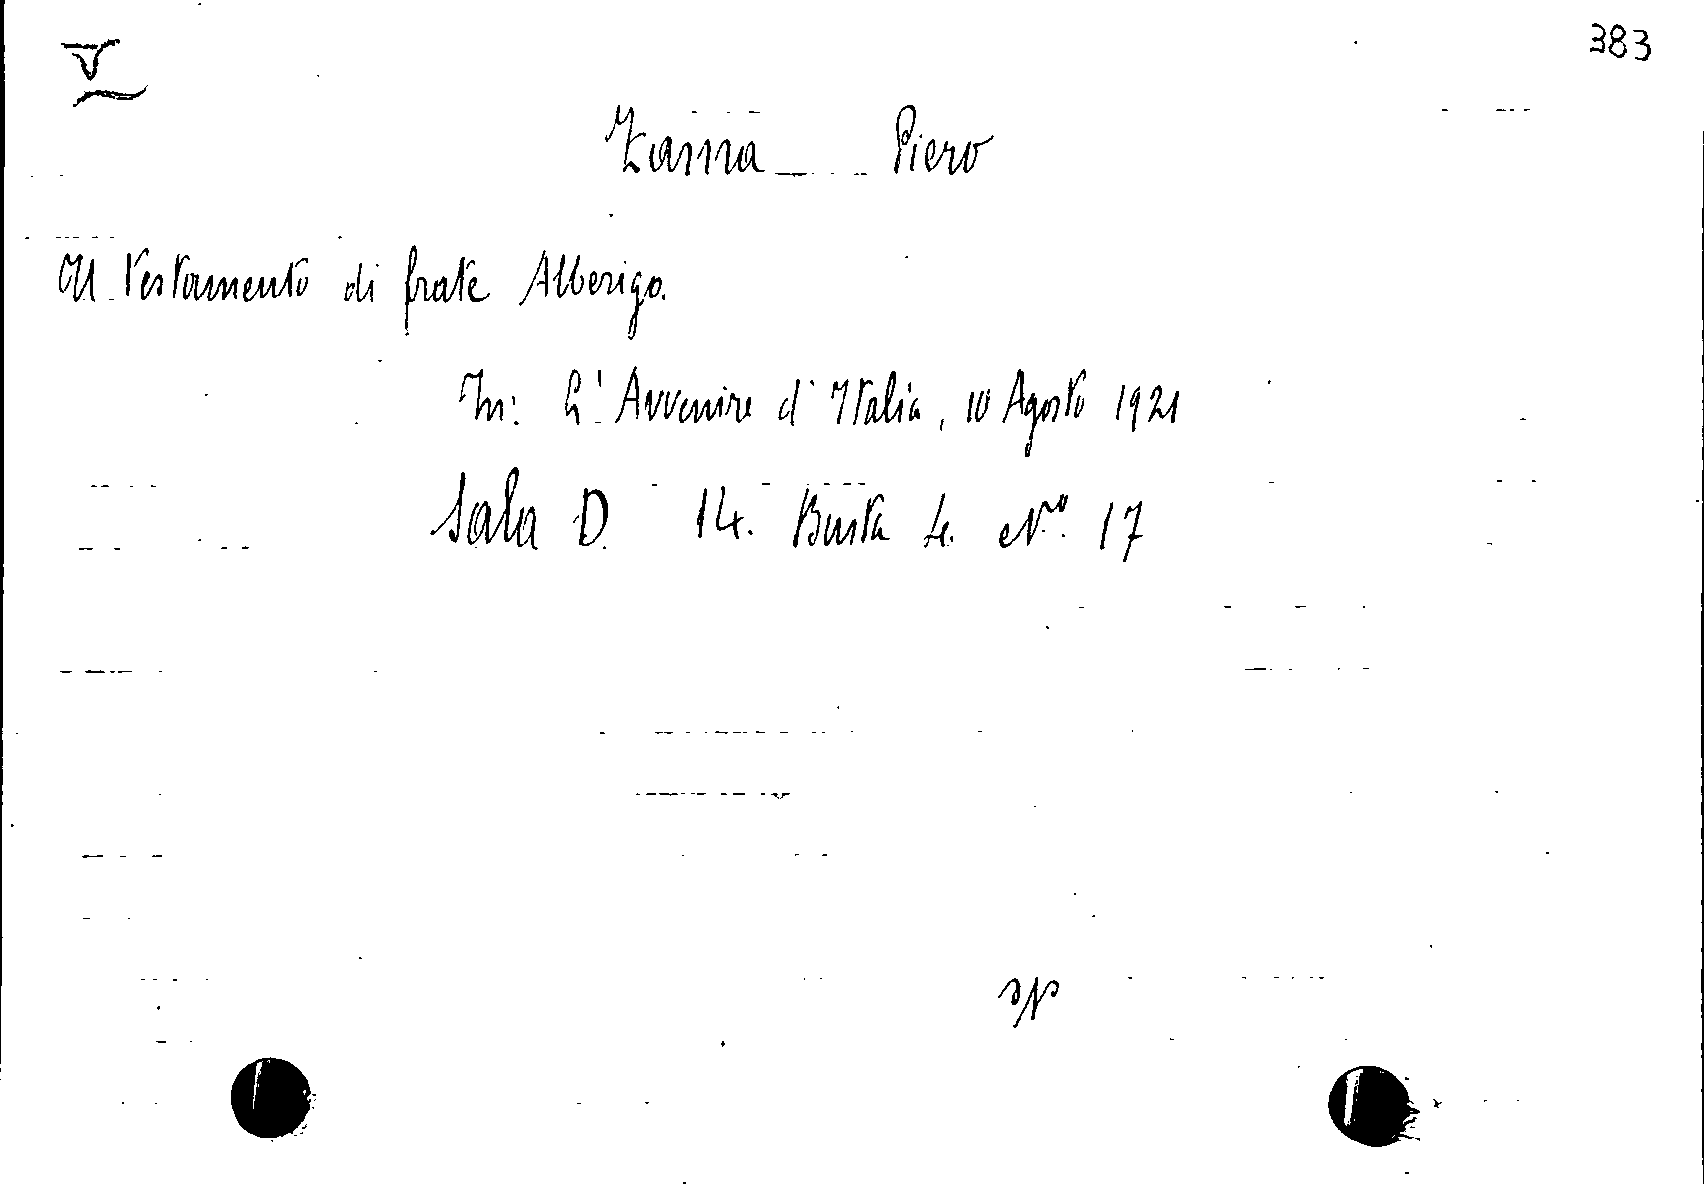 383
V
Zama Piero
Il testamento di frate Alberigo.
In: L'Avvenire d'Italia, 10 Agosto 1921
Sala D. 14. Busta 4. Nº 17